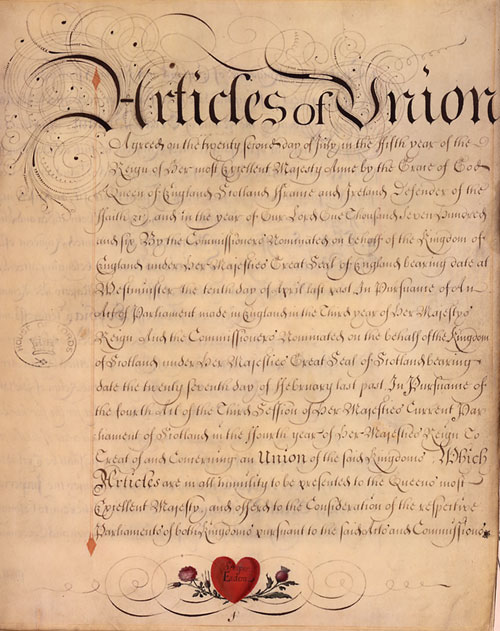 Articles of Union
Agreed on the twenty second day of July in the fifth year of the
Reign of Her most Excellent Majesty Anne by the Grace of God
Queen of England Scotland France and Ireland Defender of the
Faith &c. and in the year of Our Lord One Thousand Seven Hundred
and six By the Commissioners Nominated on behalf of the Kingdom of
England under Her Majesties Great Seal of England bearing date at
Westminster the tenth day of April last past In Pursuance of An
Act of Parliament made in England in the Third year of Her Majestys
Reign And the Commissioners Nominated on the behalf of the Kingdom
of Scotland under Her Majesties Great Seal of Scotland bearing
date the twenty seventh day of ffebruary last past In Pursuance of
the fourth Act of the Third Session of Her Majesties Current Par-
liament of Scotland in the ffourth year of Her Majesties Reign To
Treat of and Concerning an Union of the said Kingdoms Which
Articles are in all humility to be presented to the Queens most
Excellent Majesty and offered to the Consideration of the respective
Parliaments of both Kingdoms pursuant to the said Acts and Commissions